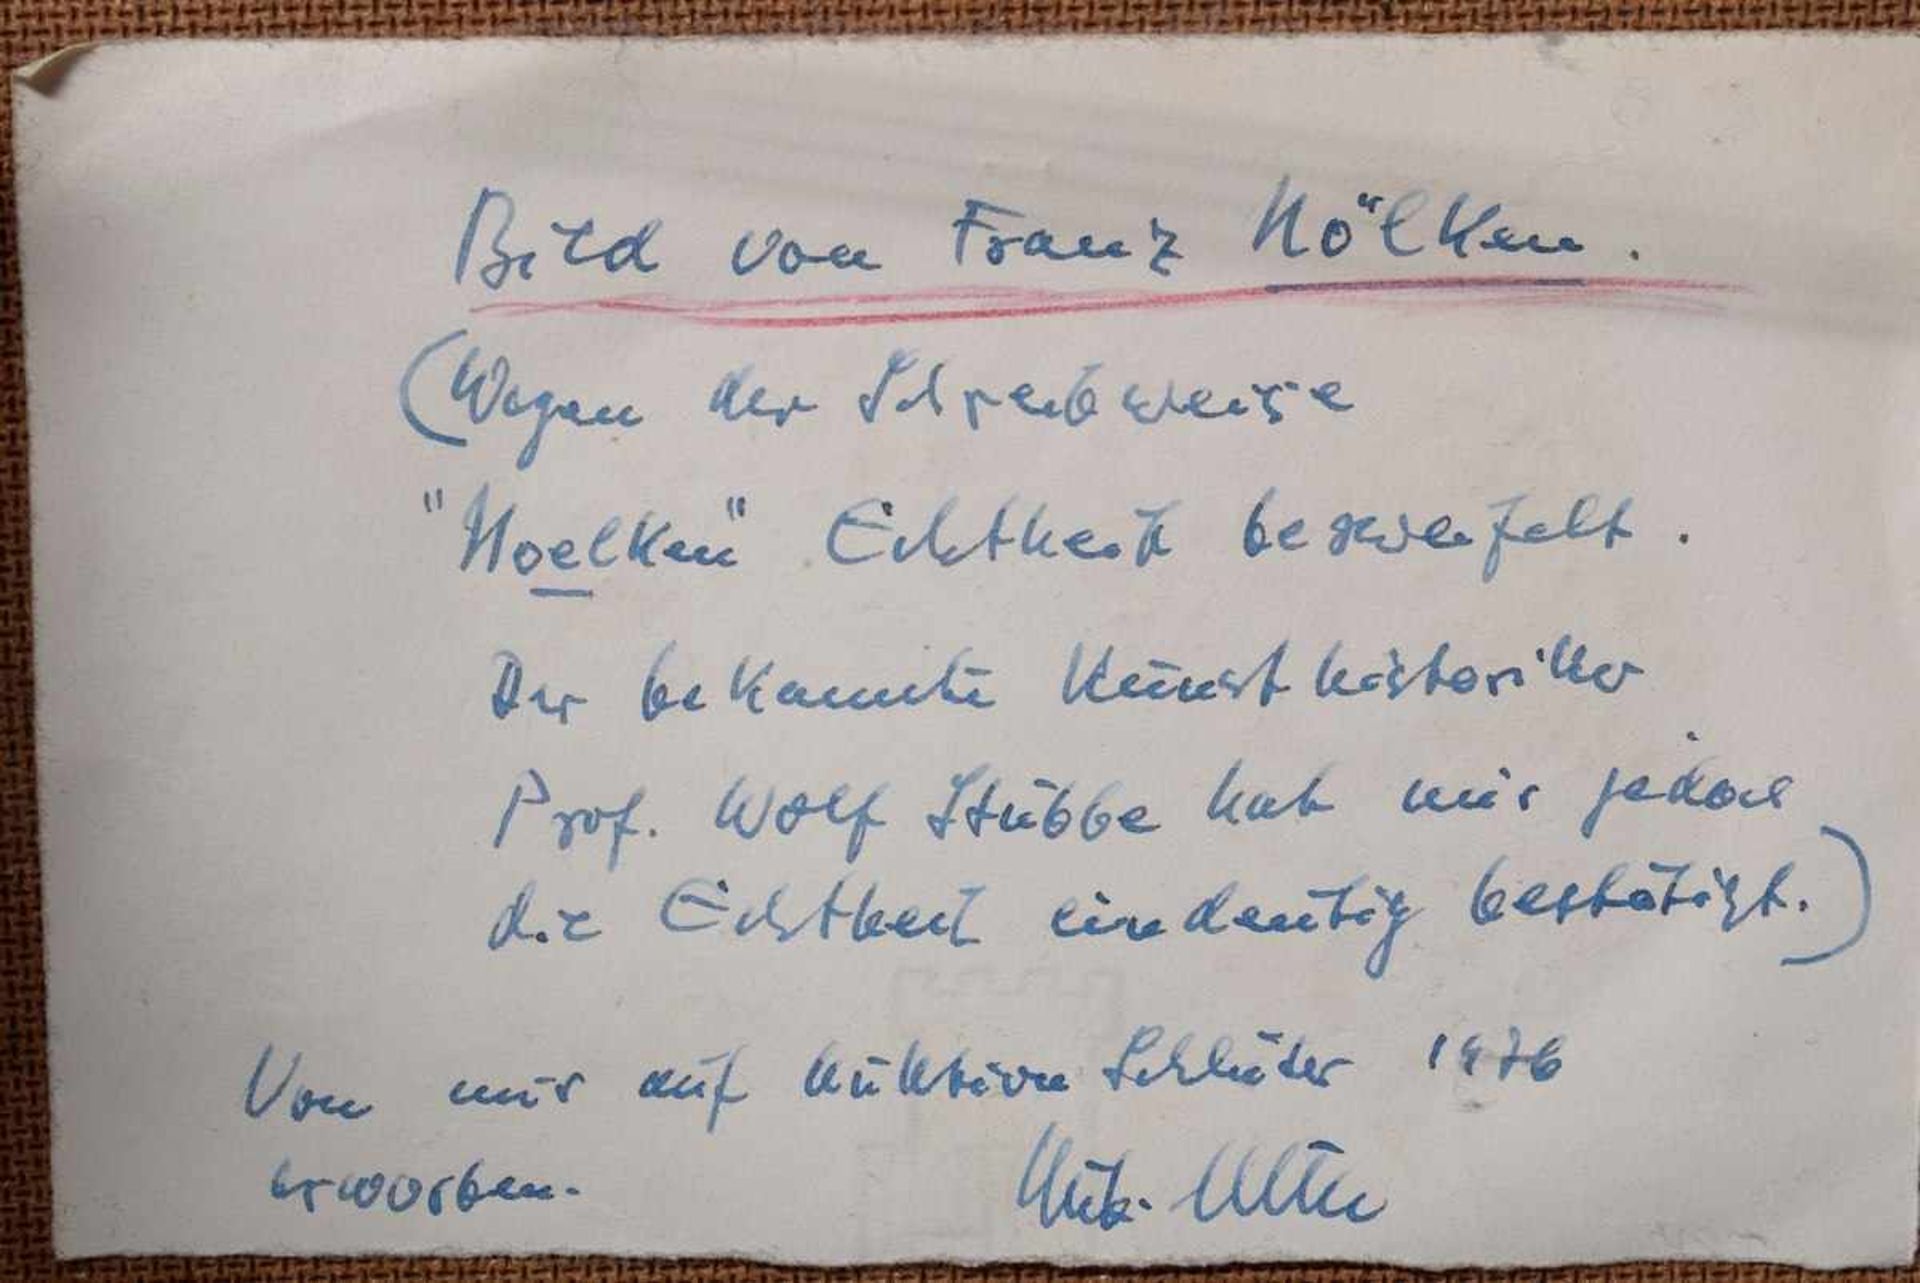 Bild von Franz Nölken.
(Wegen der Schreibweise
"Noelken" Echtheit bezweifelt.
Der bekannte Kunsthistoriker
Prof. Wolf Stubbe hat mir jedoch
die Echtheit eindeutig bestätigt.)
Von mir auf Auktion Schlüter 1976
erworben.